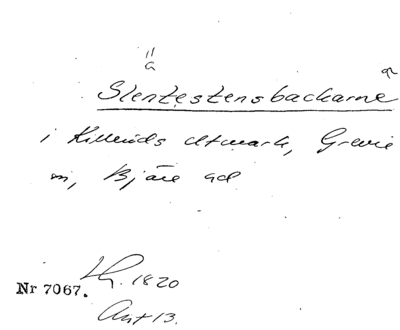 Slentestensbackarne
i Killeröds utmark, Grevie
sn, Bjäre hd
Lh. 1820
Nr 7067.
Akt 13.